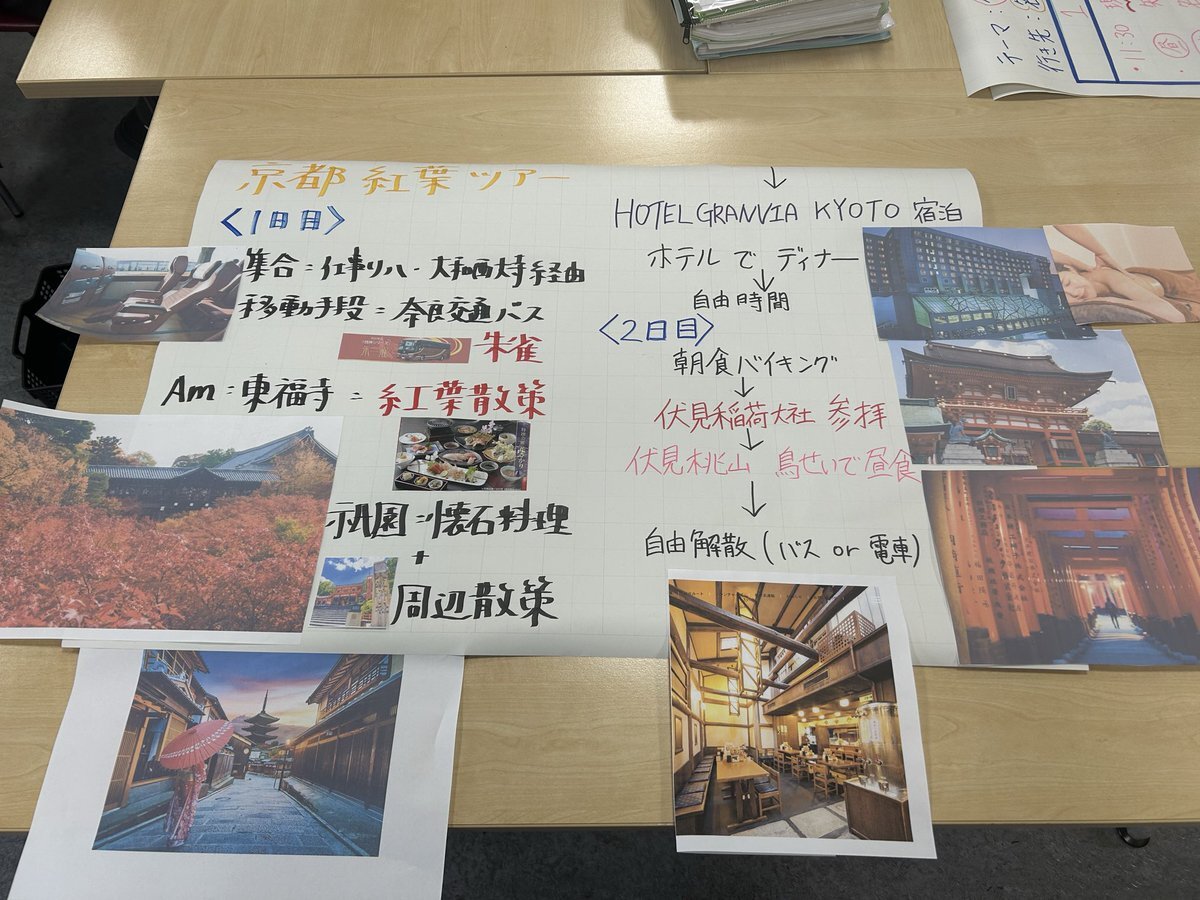 京都 紅葉ツアー
〈1日目〉
集合=仕事リハ・大和西大寺経由
移動手段=奈良交通バス
朱雀
Am:東福寺=紅葉散策
祇園=懐石料理
+
周辺散策
↓
HOTEL GRANVIA KYOTO 宿泊
ホテルで ディナー
↓
自由時間
〈2日目〉
朝食バイキング
↓
伏見稲荷大社 参拝
↓
伏見桃山 鳥せいで昼食
↓
自由解散(バス or 電車)
テーマ:
行き先:
1
・11:30
昼